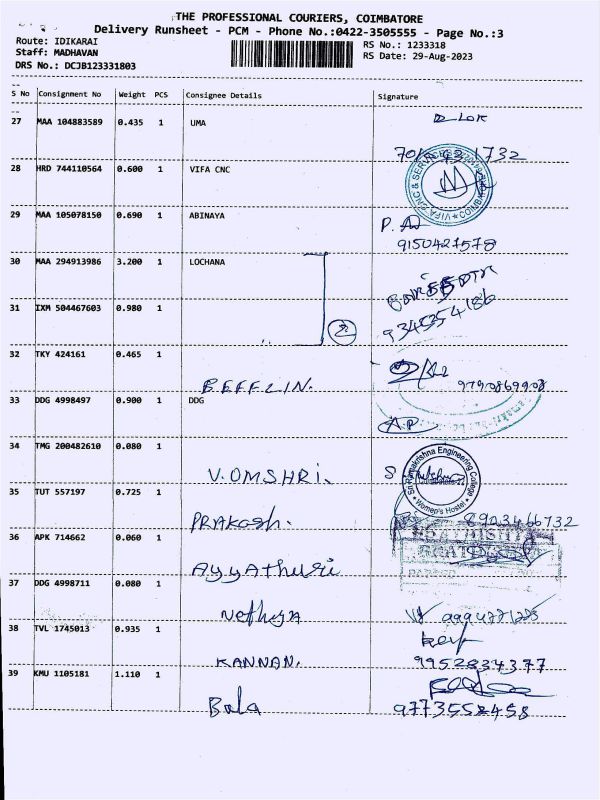 THE PROFESSIONAL COURIERS, COIMBATORE
Delivery Runsheet - PCM - Phone No.:0422-3505555 - Page No.:3
Route: IDIKARAI
Staff: MADHAVAN
DRS No.: DCJB123331803
RS No.: 1233318
RS Date: 29-Aug-2023
S No Consignment No Weight PCS Consignee Details Signature
27 MAA 104883589 0.435 1 UMA
28 HRD 744110564 0.600 1 VIFA CNC
29 MAA 105078150 0.690 1 ABINAYA
P.
9150427578
30 MAA 294913986 3.200 1 LOCHANA
31 IXM 504467603 0.980 1
2
9345354186
32 TKY 424161 0.465 1
BEFFLIN. 9790869908
33 DDG 4998497 0.900 1 DDG
A.P
34 TMG 200482610 0.080 1
V.OMSHRI.
Sri Ramakrishna Engineering College
Women's Hostel
35 TUT 557197 0.725 1
PRAKASH. 8923466732
36 APK 714662 0.060 1
Ayyathuri
37 DDG 4998711 0.080 1
Nethya
38 TVL 1745013 0.935 1
KANNAN. 9952834377
39 KMU 1105181 1.110 1
Bala 9773552458